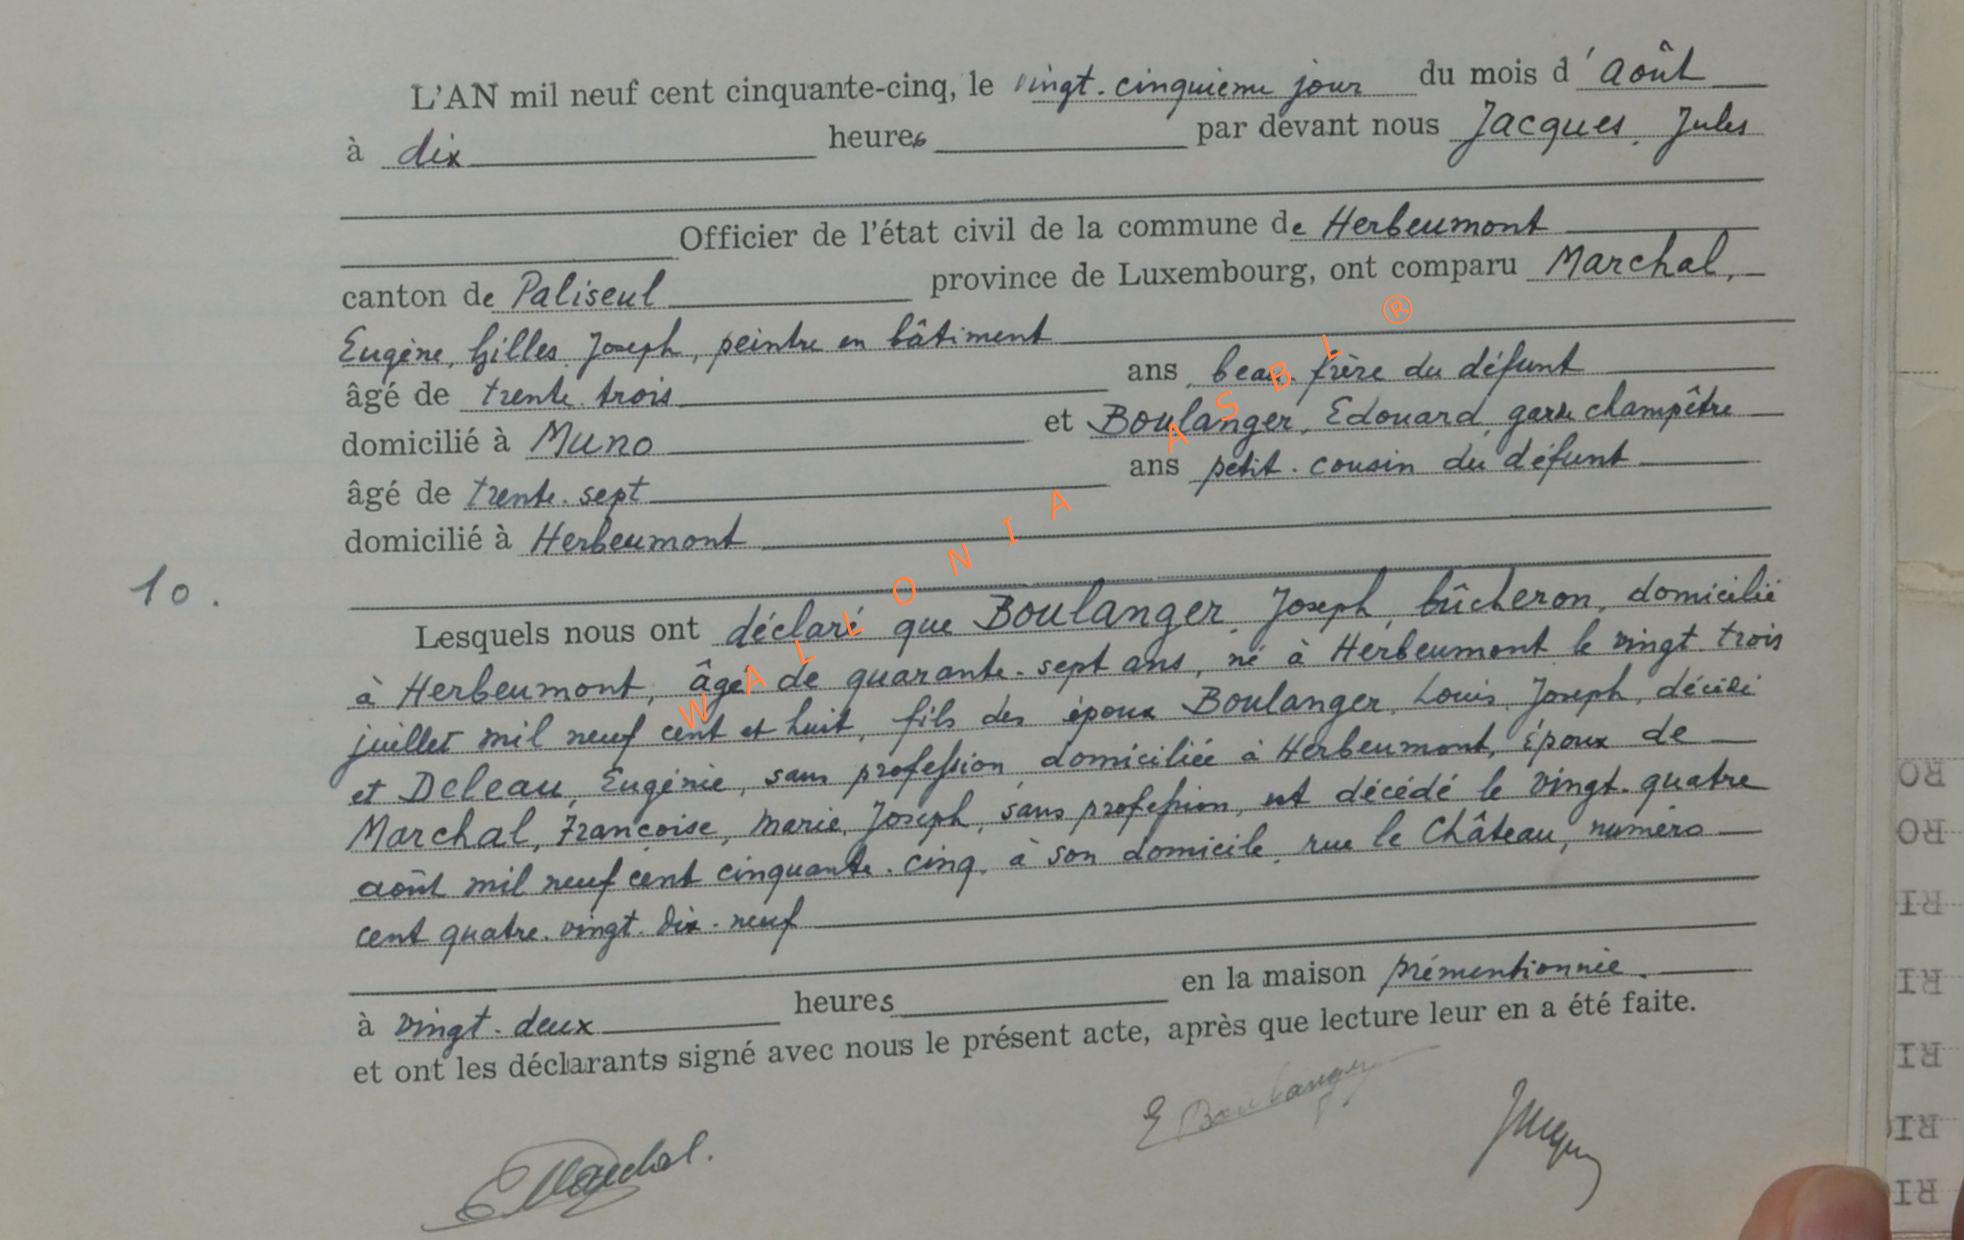 L'AN mil neuf cent cinquante-cinq, le vingt-cinquième jour du mois d'août
à dix heures par devant nous Jacques, Jules
Officier de l'état civil de la commune de Herbeumont
canton de Paliseul province de Luxembourg, ont comparu Marchal,
Eugène, Gilles, Joseph, peintre en bâtiment
âgé de trente-trois ans, beau-frère du défunt
domicilié à Muno et Boulanger, Edouard, garde champêtre
âgé de trente-sept ans petit-cousin du défunt
domicilié à Herbeumont
10.
Lesquels nous ont déclaré que Boulanger, Joseph, bûcheron, domicilié
à Herbeumont, âgé de quarante-sept ans, né à Herbeumont le vingt-trois
juillet mil neuf cent et huit, fils des époux Boulanger, Louis, Joseph, décédé
et Deleau, Eugénie, sans profession, domiciliée à Herbeumont, époux de
Marchal, Françoise, Marie, Joseph, sans profession, est décédé le vingt-quatre
août mil neuf cent cinquante-cinq, à son domicile, rue le Château, numéro
cent quatre-vingt-dix-neuf
à vingt-deux heures en la maison prémentionnée.
et ont les déclarants signé avec nous le présent acte, après que lecture leur en a été faite.
E Marchal.
E Boulanger
Jacques
WALLONIA ASBL ®
RO
RO
RI
RI
RI
RI
RI